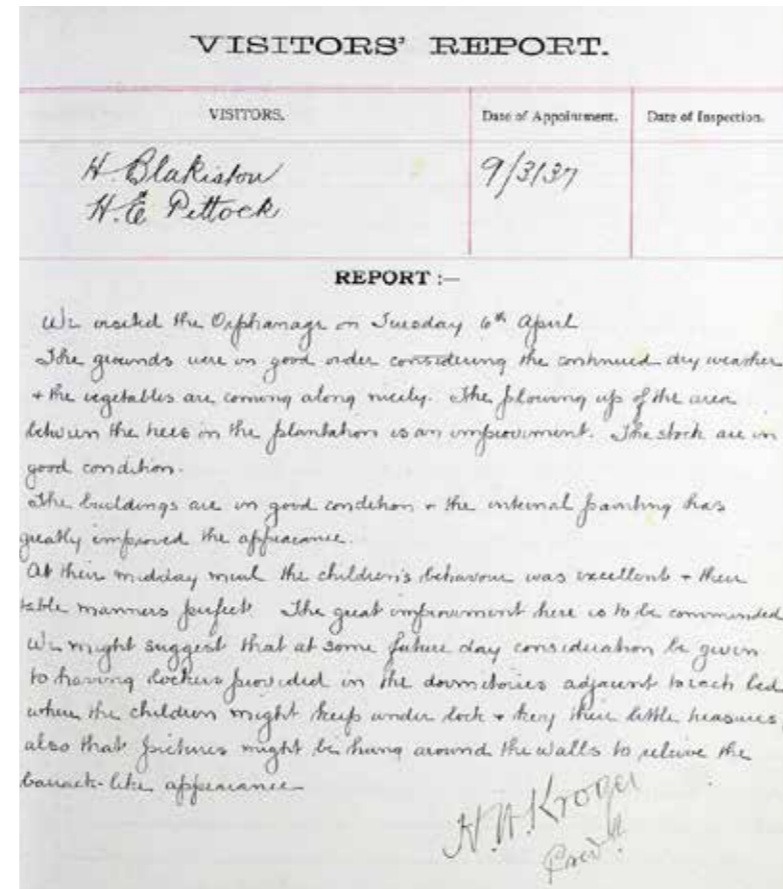 VISITORS' REPORT.
VISITORS.
Date of Appointment.
Date of Inspection.
H. Blakiston
H. E. Pittock
9/3/37
REPORT :—
We visited the Orphanage on Tuesday 6th April
The grounds were in good order considering the continued dry weather
+ the vegetables are coming along nicely. The plowing up of the area
between the trees in the plantation is an improvement. The stock are in
good condition.
The buildings are in good condition + the internal painting has
greatly improved the appearance.
At their midday meal the children's behaviour was excellent + their
table manners perfect. The great improvement here is to be commended
We might suggest that at some future day consideration be given
to having lockers provided in the dormitories adjacent to each bed
where the children might keep under lock + key their little treasures,
also that pictures might be hung around the walls to relieve the
barrack-like appearance
Kroger